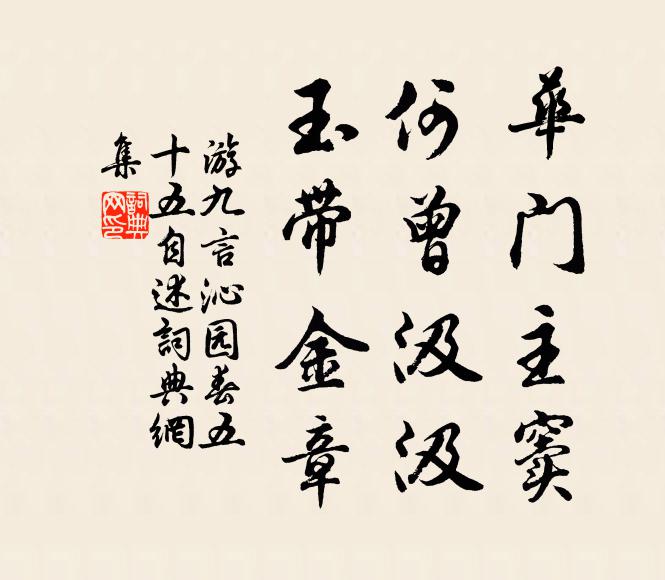 華门主窦
何曾汲汲
玉带金章
游九言沁园春五
十五自述詞典網
集
詞典网印